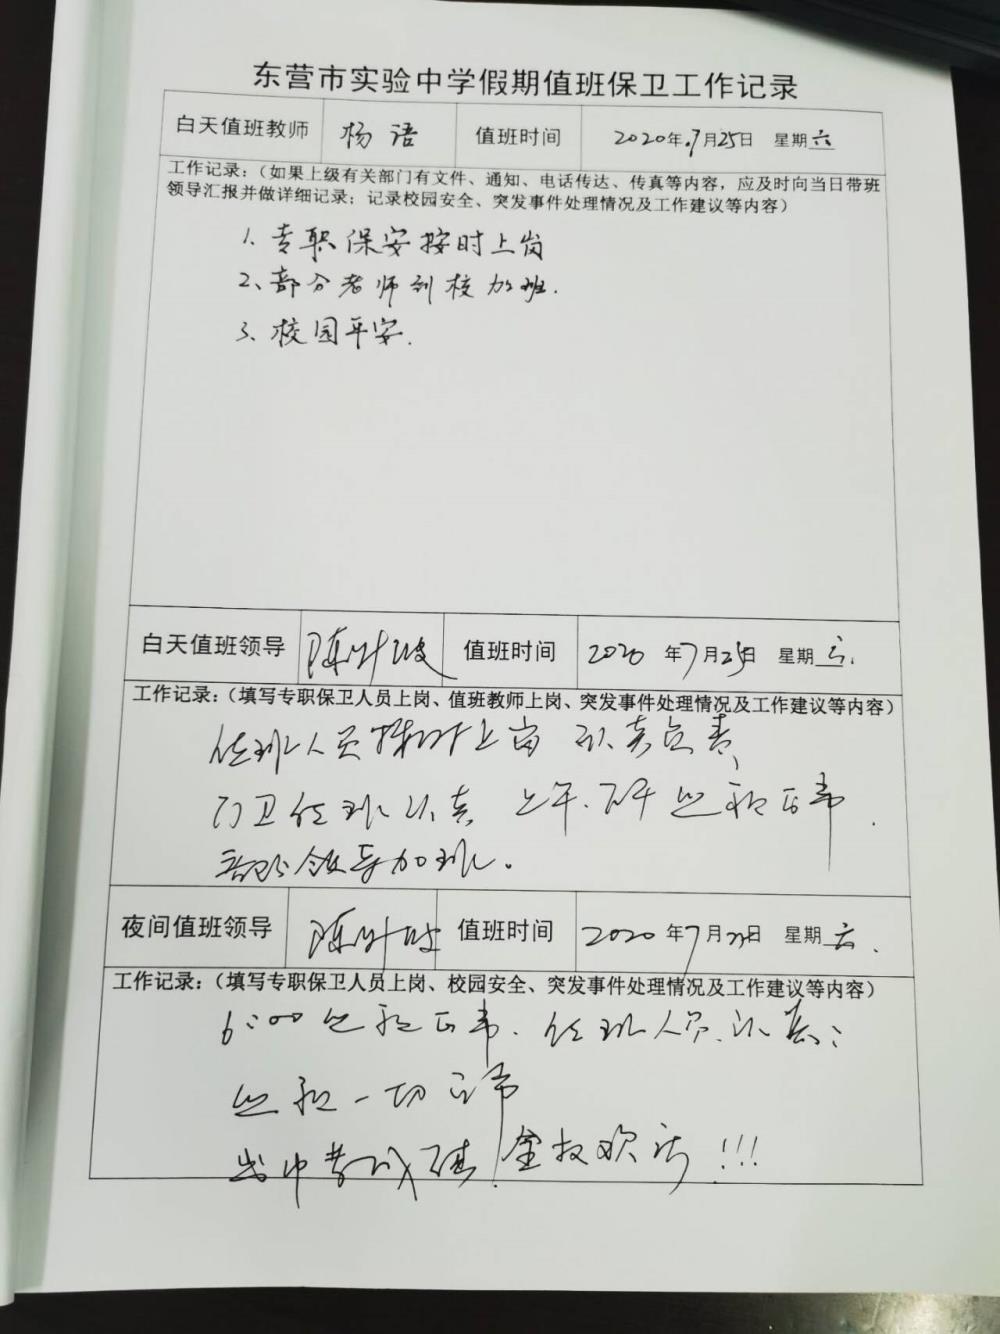 东营市实验中学假期值班保卫工作记录
白天值班教师 杨语 值班时间 2020年7月25日 星期六
工作记录:(如果上级有关部门有文件、通知、电话传达、传真等内容，应及时向当日带班
领导汇报并做详细记录；记录校园安全、突发事件处理情况及工作建议等内容)
1、专职保安按时上岗
2、部分老师到校加班.
3、校园平安.
白天值班领导 陈 值班时间 2020年7月25日 星期六.
工作记录:(填写专职保卫人员上岗、值班教师上岗、突发事件处理情况及工作建议等内容)
值班人员按时上岗 认真负责,
门卫值班认真 上午、下午巡视正常.
部分领导加班。
夜间值班领导 陈 值班时间 2020年7月 日 星期六.
工作记录:(填写专职保卫人员上岗、校园安全、突发事件处理情况及工作建议等内容)
6:00巡视正常.值班人员认真;
巡视一切正常
中考成绩 全校欢 !!!